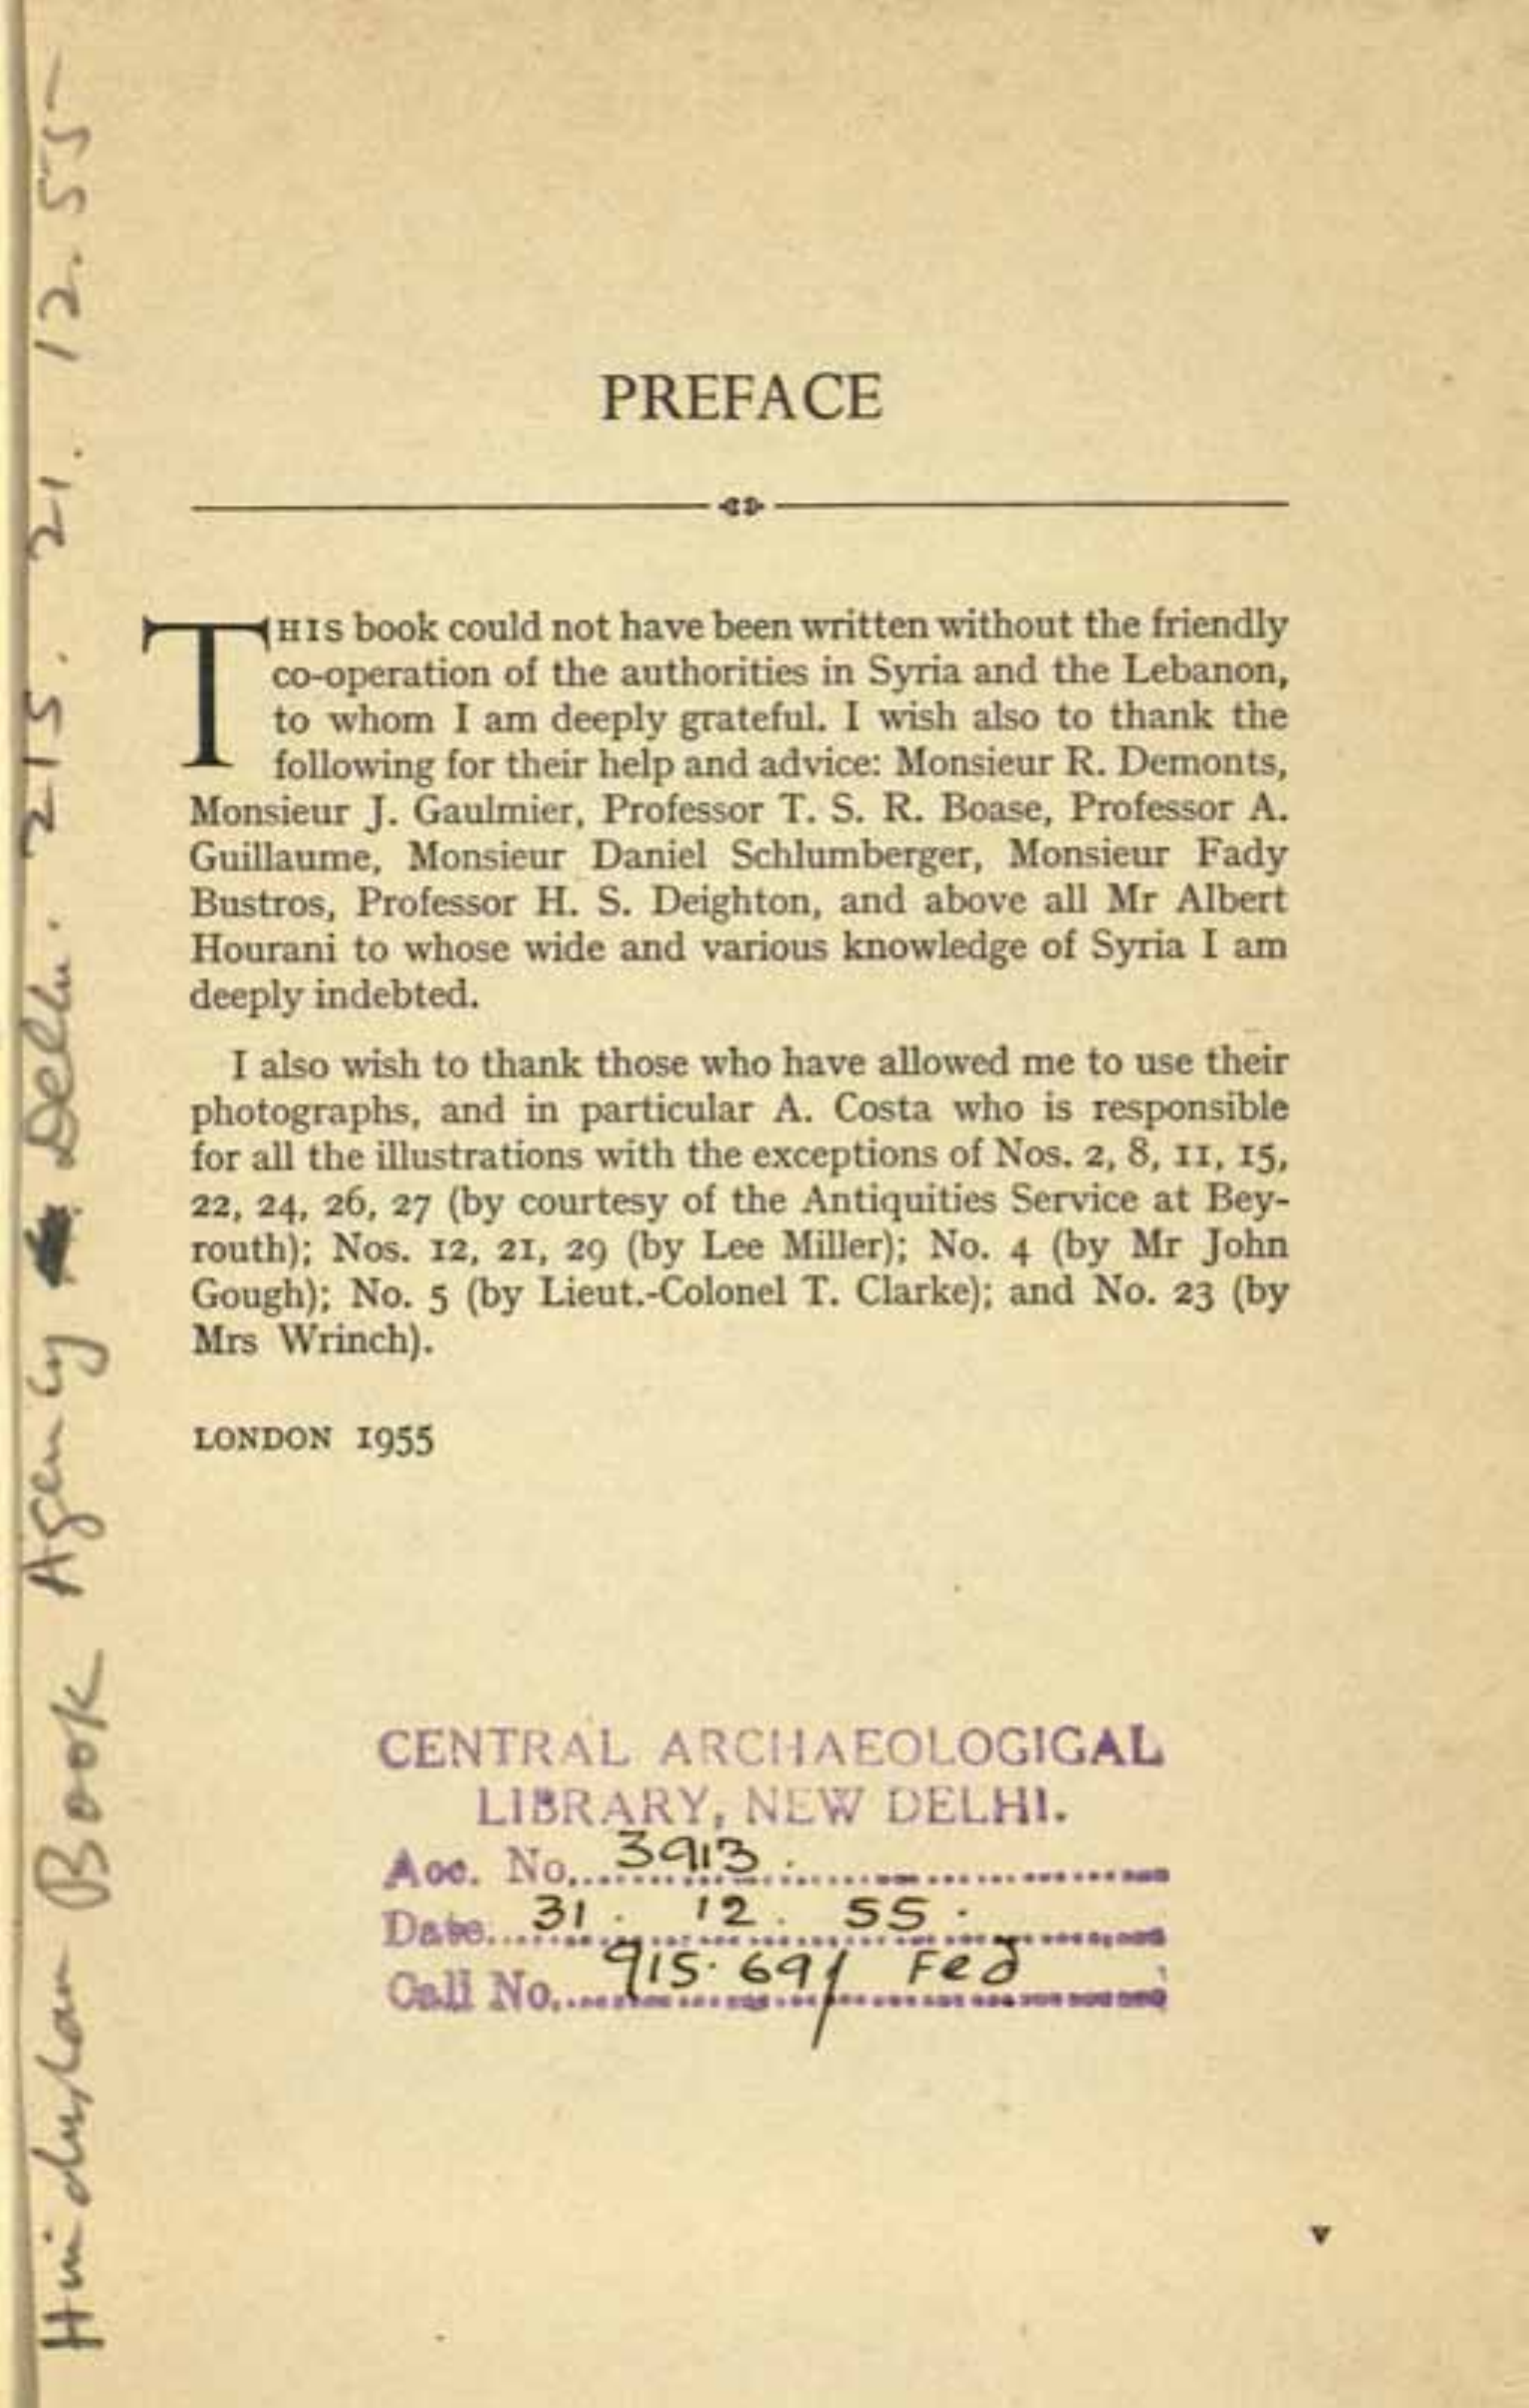 PREFACE
THIS book could not have been written without the friendly
co-operation of the authorities in Syria and the Lebanon,
to whom I am deeply grateful. I wish also to thank the
following for their help and advice: Monsieur R. Demonts,
Monsieur J. Gaulmier, Professor T. S. R. Boase, Professor A.
Guillaume, Monsieur Daniel Schlumberger, Monsieur Fady
Bustros, Professor H. S. Deighton, and above all Mr Albert
Hourani to whose wide and various knowledge of Syria I am
deeply indebted.
I also wish to thank those who have allowed me to use their
photographs, and in particular A. Costa who is responsible
for all the illustrations with the exceptions of Nos. 2, 8, 11, 15,
22, 24, 26, 27 (by courtesy of the Antiquities Service at Bey-
routh); Nos. 12, 21, 29 (by Lee Miller); No. 4 (by Mr John
Gough); No. 5 (by Lieut.-Colonel T. Clarke); and No. 23 (by
Mrs Wrinch).
LONDON 1955
CENTRAL ARCHAEOLOGIGAL
LIBRARY, NEW DELHI.
Acc. No. 3913.
Date 31. 12. 55.
Call No. 915.69/ Fed
v
Hindustan Book Agency Delhi. 215. 21. 12. 55-